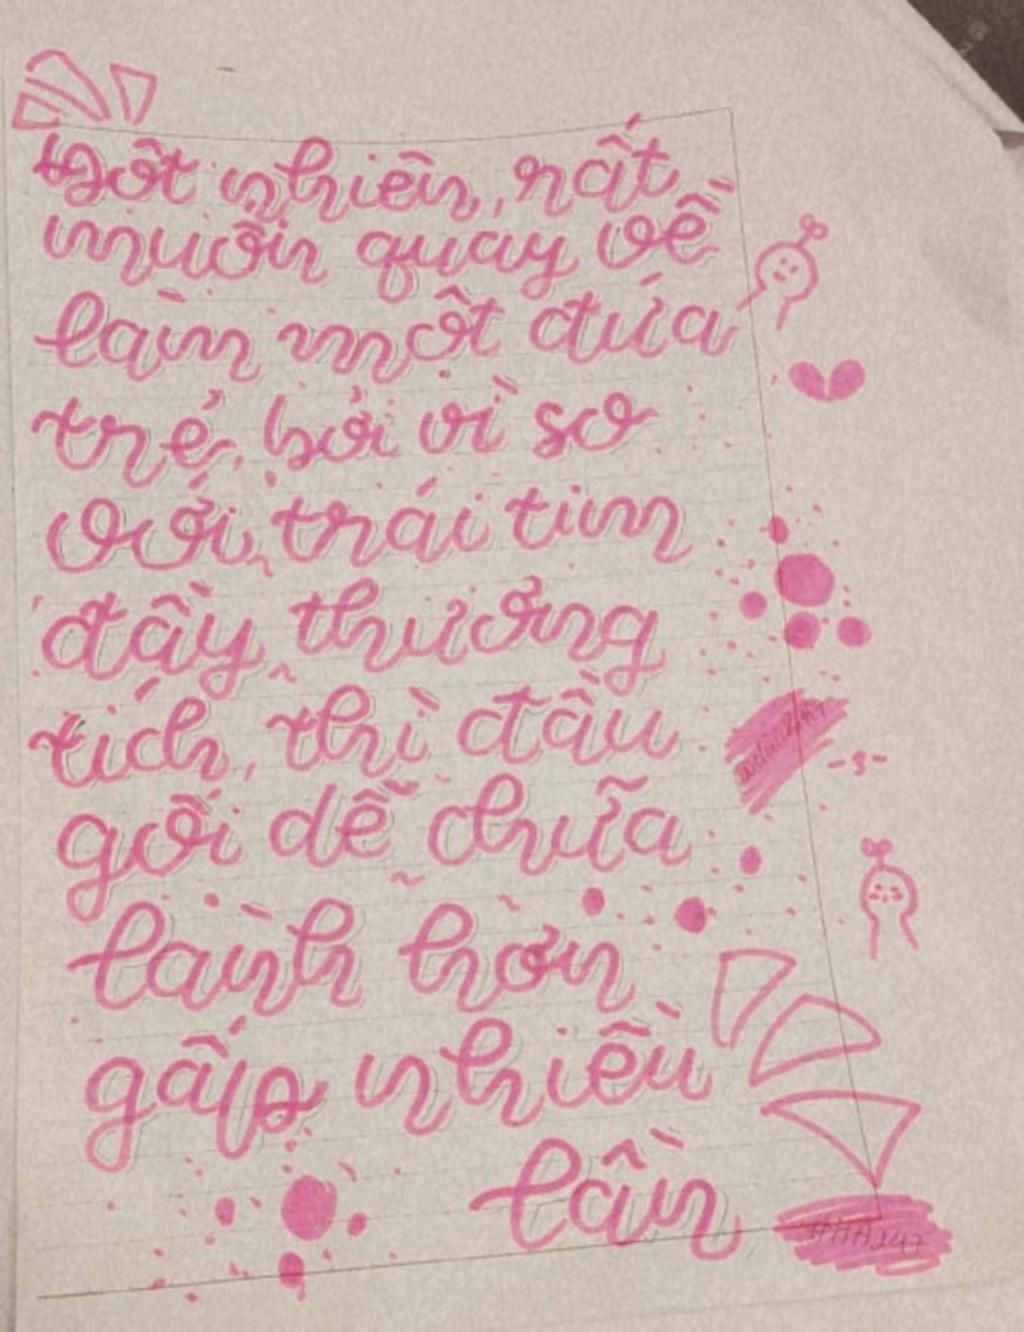 Đột nhiên, rất
muốn quay về
làm một đứa
trẻ, bởi vì so
với trái tim
đầy thương
tích, thì đầu
gối dễ chữa
lành hơn
gấp nhiều
lần